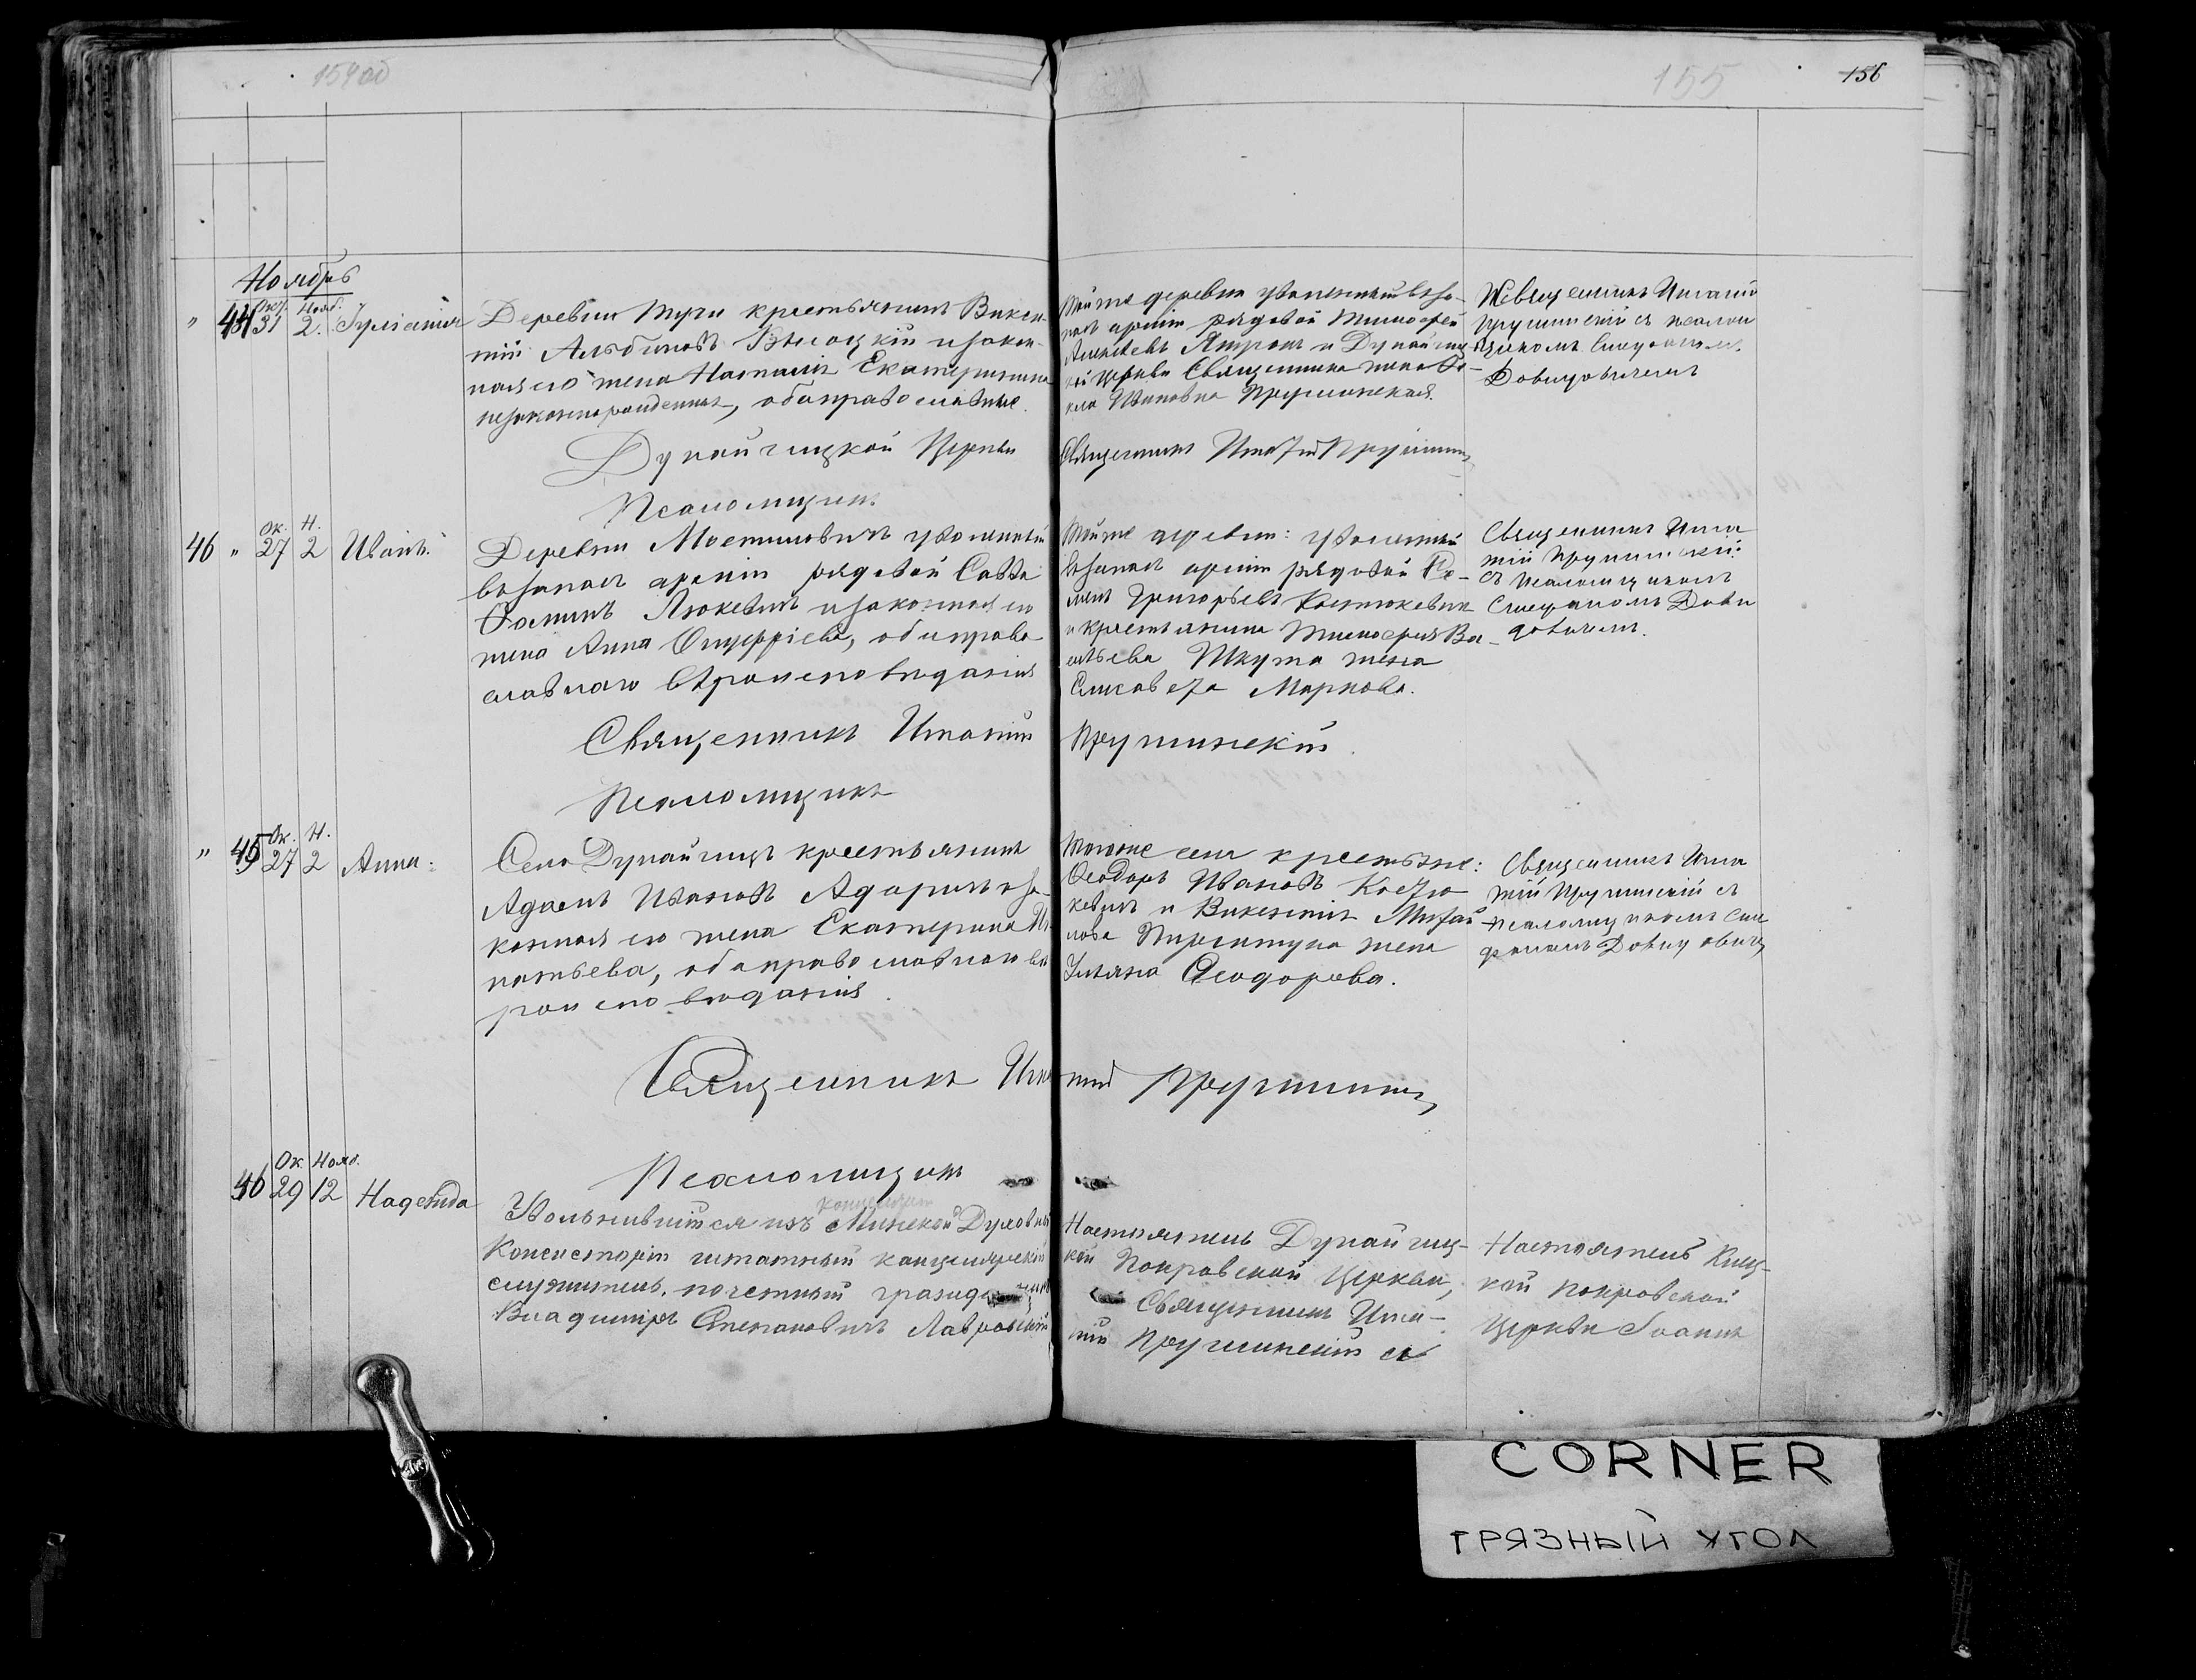 154об
155
156
Ноябрь
Окт. Нояб.
" 44 31 2. Іуліанія
Деревни Туги крестьянинъ Викен-
тій Альбиновъ Высоцкій и закон-
ная его жена Наталія Екатеринина
незаконнорожденная, оба православные.
Тойже деревни уволенный въ за-
пасъ арміи рядовой Тимофей
Алексѣевъ Ятромъ и Дунайчиц-
кой церкви Священника жена
Ивановна Прушинская.
Священникъ Игнатій
Прушинскій съ псалом-
щикомъ Стефаномъ
Довидовичемъ
Дунайчицкой Церкви Священникъ Игнатій Прушинскій
Псаломщикъ
Ок. Н.
46 " 27 2 Иванъ.
Деревни Мостиловичъ уволенный
въ запасъ арміи рядовой Савва
Фоминъ Люкевичъ и законная его
жена Анна Онуфріева, оба право-
славнаго вѣроисповѣданія
Тойже деревни: уволенный
въ запасъ арміи рядовой
Григорьевъ Костюкевичъ
и крестьянина Тимофея Ва-
сильева Шкута жена
Елисавета Маркова.
Священникъ Игна-
тій Прушинскій
съ псаломщикомъ
Стефаномъ Дови-
довичемъ.
Священникъ Игнатій Прушинскій
Псаломщикъ
Ок. Н.
" 45 27 2 Анна:
Села Дунайчицъ крестьянинъ
Адамъ Ивановъ Адаричъ и за-
конная его жена Екатерина Иг-
натьева, оба православнаго вѣ-
роисповѣданія
Тогоже села крестьяне:
Ѳеодоръ Ивановъ Костю-
кевичъ и Викентія Михай-
лова жена
Ульяна Ѳеодорова.
Священникъ Игна-
тій Прушинскій съ
псаломщикомъ Сте-
фаномъ Довидовичъ
Священникъ Игнатій Прушинскій
Псаломщикъ
Ок. Нояб.
46 29 12 Надежда
Уволившійся изъ Минской Духовной
Консисторіи штатный канцелярскій
служитель, почетный гражданинъ
Владиміръ Степановичъ Лавровскій
Настоятель Дунайчиц-
кой Покровской Церкви,
Священникъ Игна-
тій Прушинскій и
Настоятель Клец-
кой Покровской
Церкви Іоаннъ
CORNER
ГРЯЗНЫЙ УГОЛ